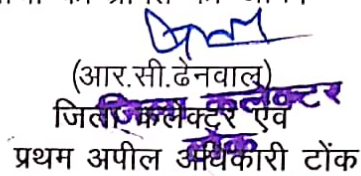 (आर.सी.ढेनवाल)
जिला कलेक्टर
जिला कलेक्टर एवं
टोंक
प्रथम अपील अधिकारी टोंक